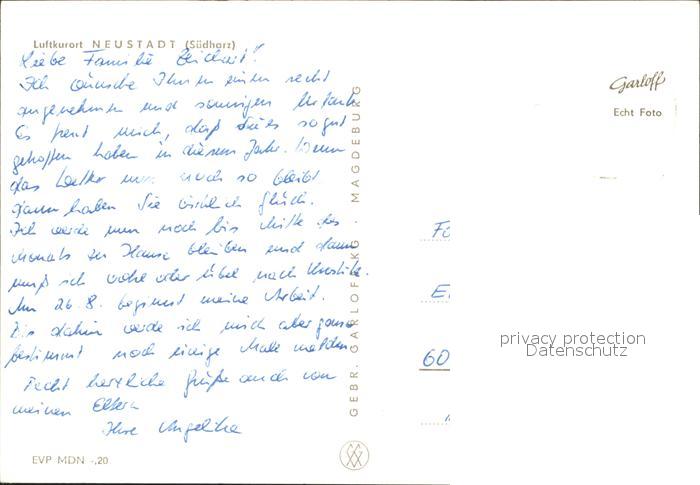 Luftkurort NEUSTADT (Südharz)
Liebe Familie
Ich wünsche Ihnen einen recht
angenehmen und sonnigen Urlaub.
Es freut mich, daß Sie's so gut
getroffen haben in diesem Jahr. Wenn
das Wetter nur noch so bleibt
dann haben Sie wirklich Glück.
Ich werde nun noch bis Mitte des
Monats zu Hause bleiben und dann
muß ich wohl oder übel nach
Am 26.8. beginnt meine Arbeit.
Bis dahin werde ich mich aber ganz
bestimmt noch einige Male melden
Recht herzliche Grüße auch von
meinen Eltern
Ihre Angelika
EVP MDN -,20
GEBR. GARLOFF KG MAGDEBURG
Garloff
Echt Foto
60
privacy protection
Datenschutz